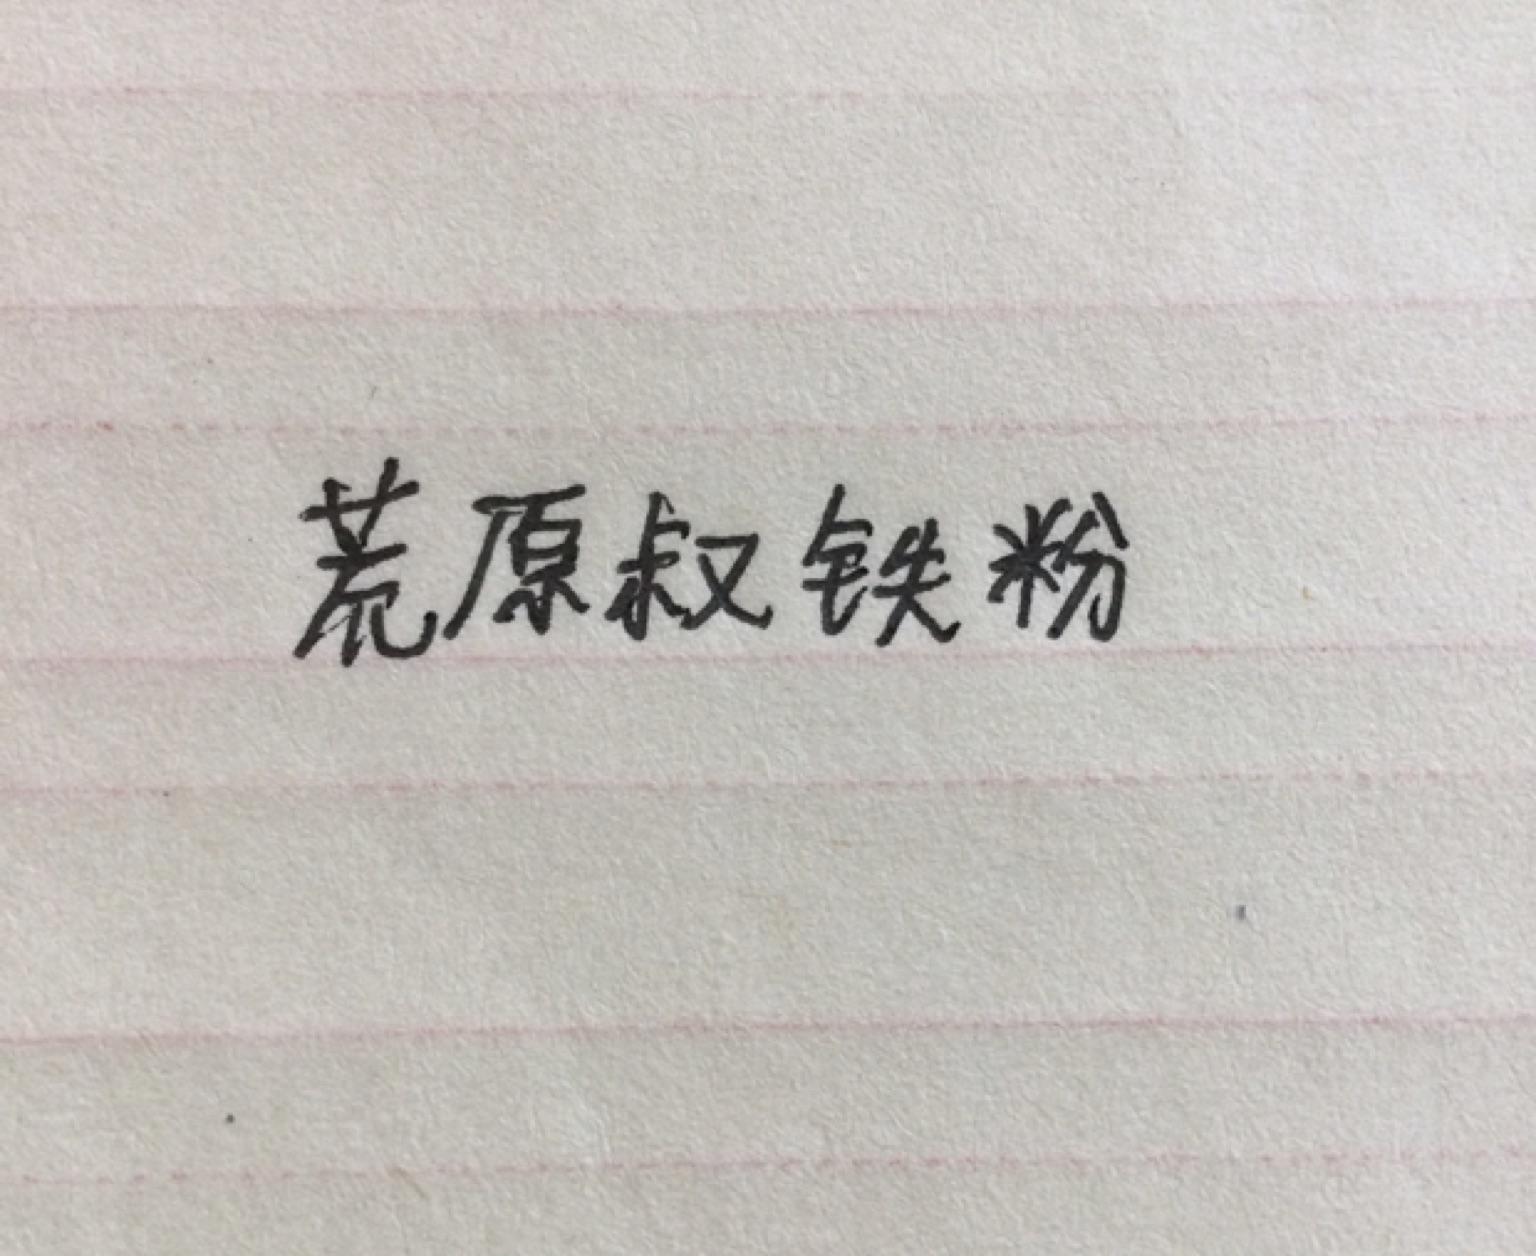 荒原叔铁粉